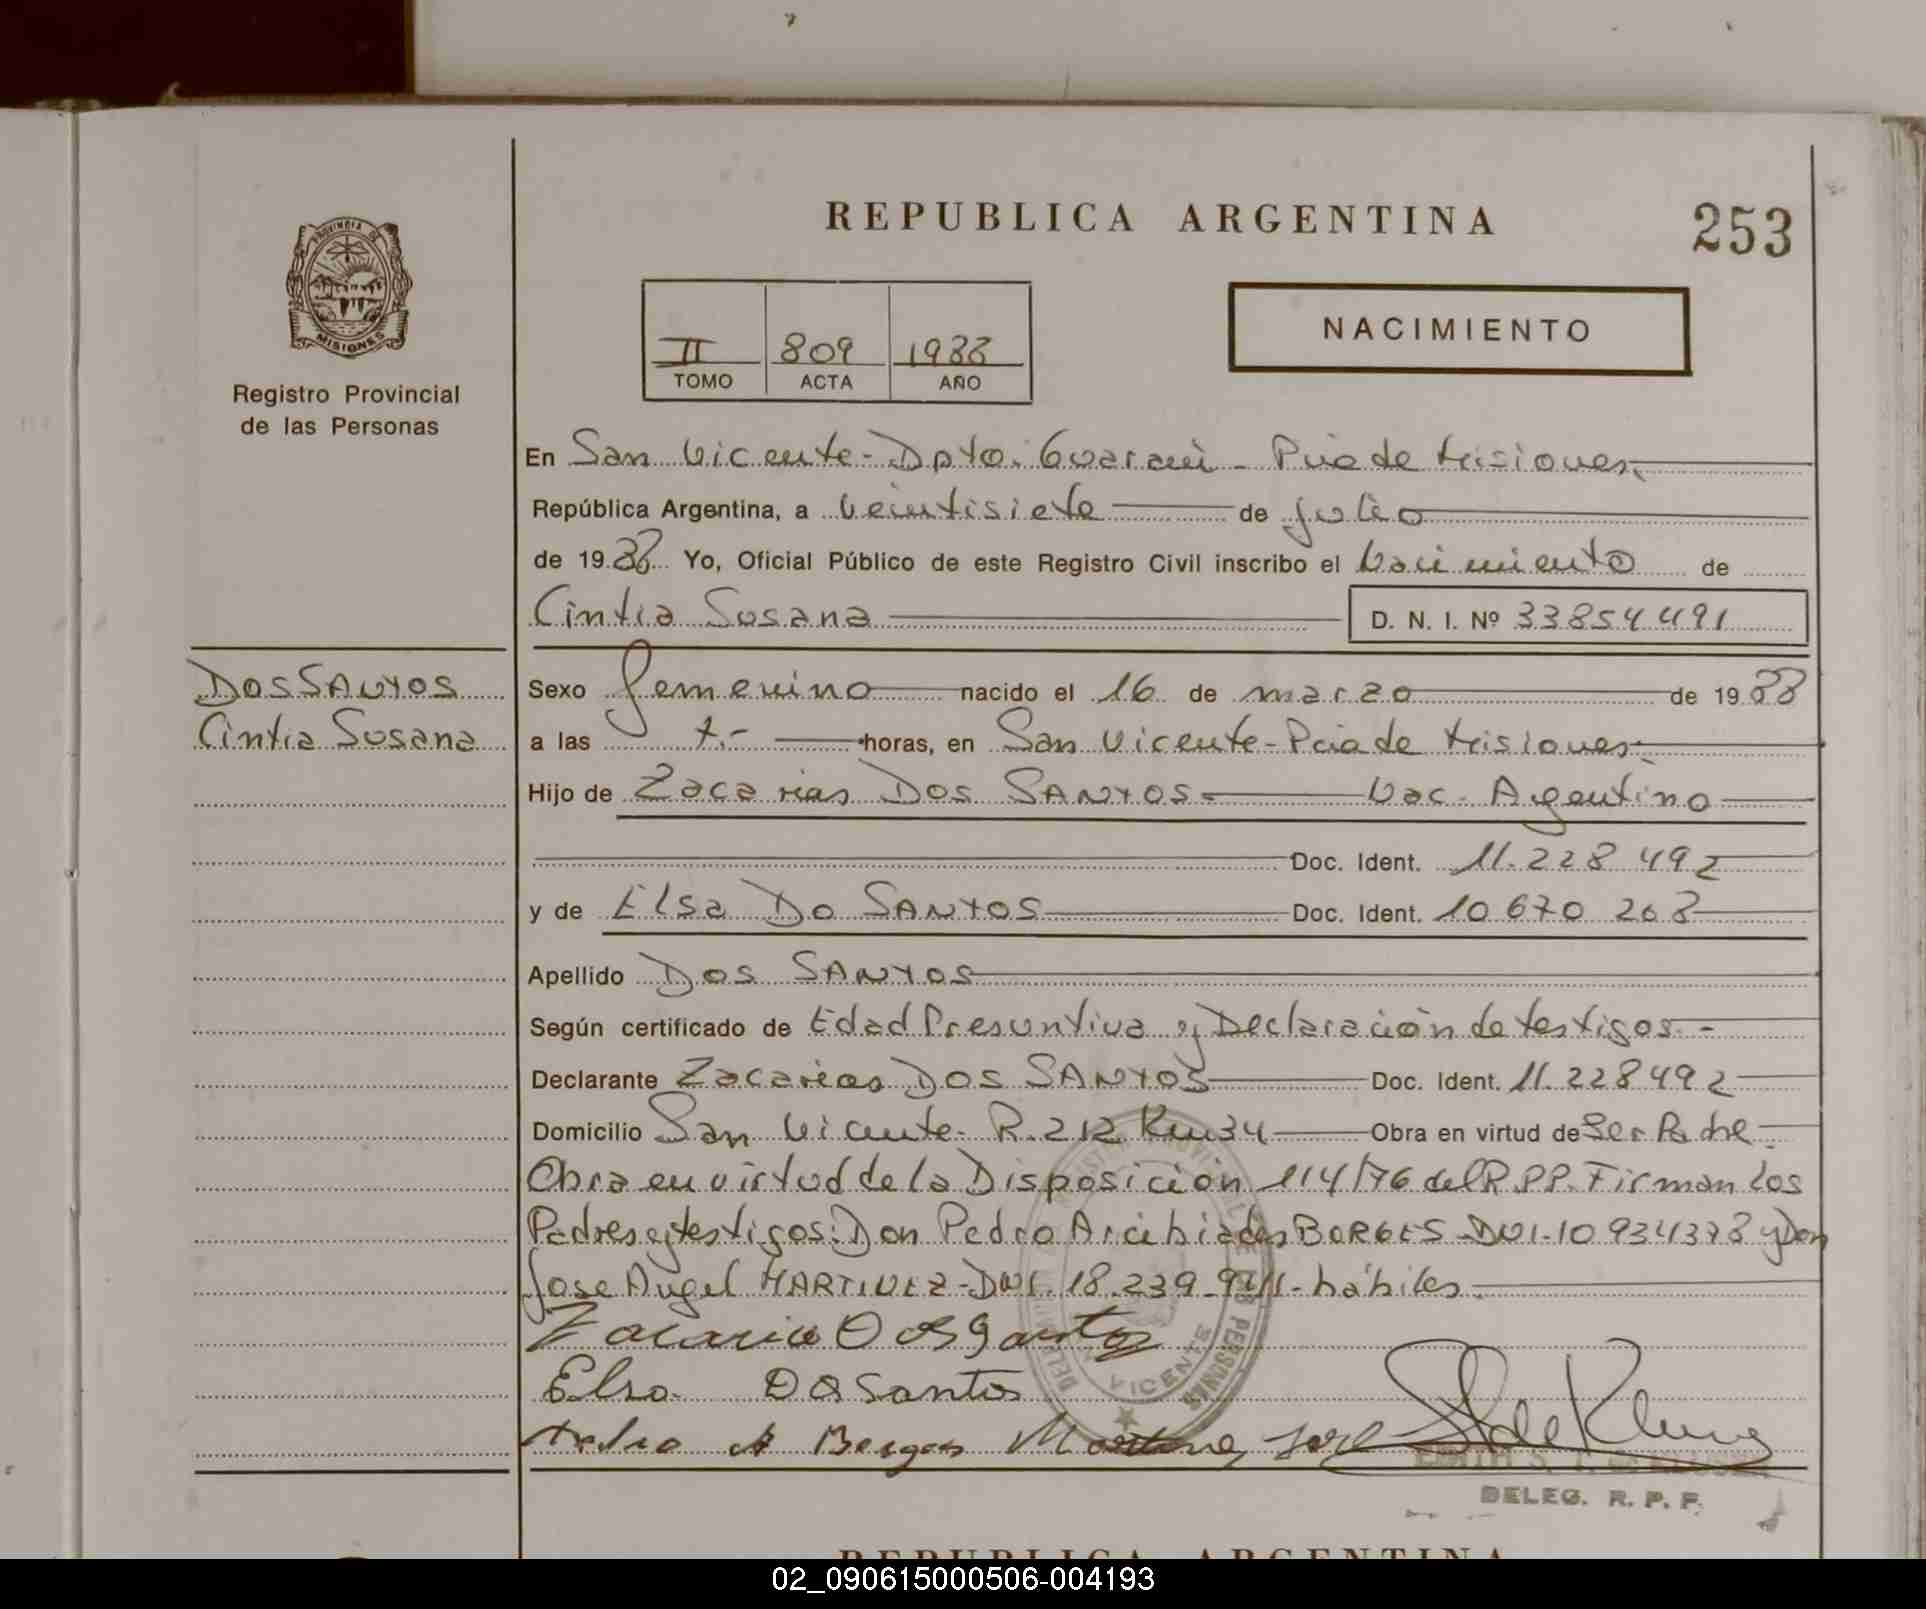 REPUBLICA ARGENTINA
253
PROVINCIA DE
MISIONES
Registro Provincial
de las Personas
II 809 1988
TOMO ACTA AÑO
NACIMIENTO
En San Vicente - Dpto. Guaraní - Pcia de Misiones.
República Argentina, a veintisiete de Julio
de 1988 Yo, Oficial Público de este Registro Civil inscribo el Nacimiento de
Cintia Susana D. N. I. Nº 33854491
DOS SANTOS
Cintia Susana
Sexo femenino nacido el 16 de marzo de 1988
a las 7.- horas, en San Vicente - Pcia de Misiones.
Hijo de Zacarias DOS SANTOS - Nac. Argentino
Doc. Ident. 11.228 492
y de Elsa DO SANTOS Doc. Ident. 10 670 268
Apellido DOS SANTOS
Según certificado de Edad Presuntiva y Declaración de testigos. -
Declarante Zacarias DOS SANTOS Doc. Ident. 11.228492
Domicilio San Vicente - R. 212 Km 34 Obra en virtud de Ser Padre.
Obra en virtud de la Disposición 114/76 del R.P.P. Firman los
Padres y testigos: Don Pedro BORGES - DNI - 10 934378 y Don
Jose Angel MARTINEZ - DNI. 18.239.941 - hábiles.
Zacaria Dos Santos
Elsa DoSantos
Pedro A Borges Martinez Jose
VICENTE
DELEG. R. P. P.
REPUBLICA ARGENTINA
02_090615000506-004193